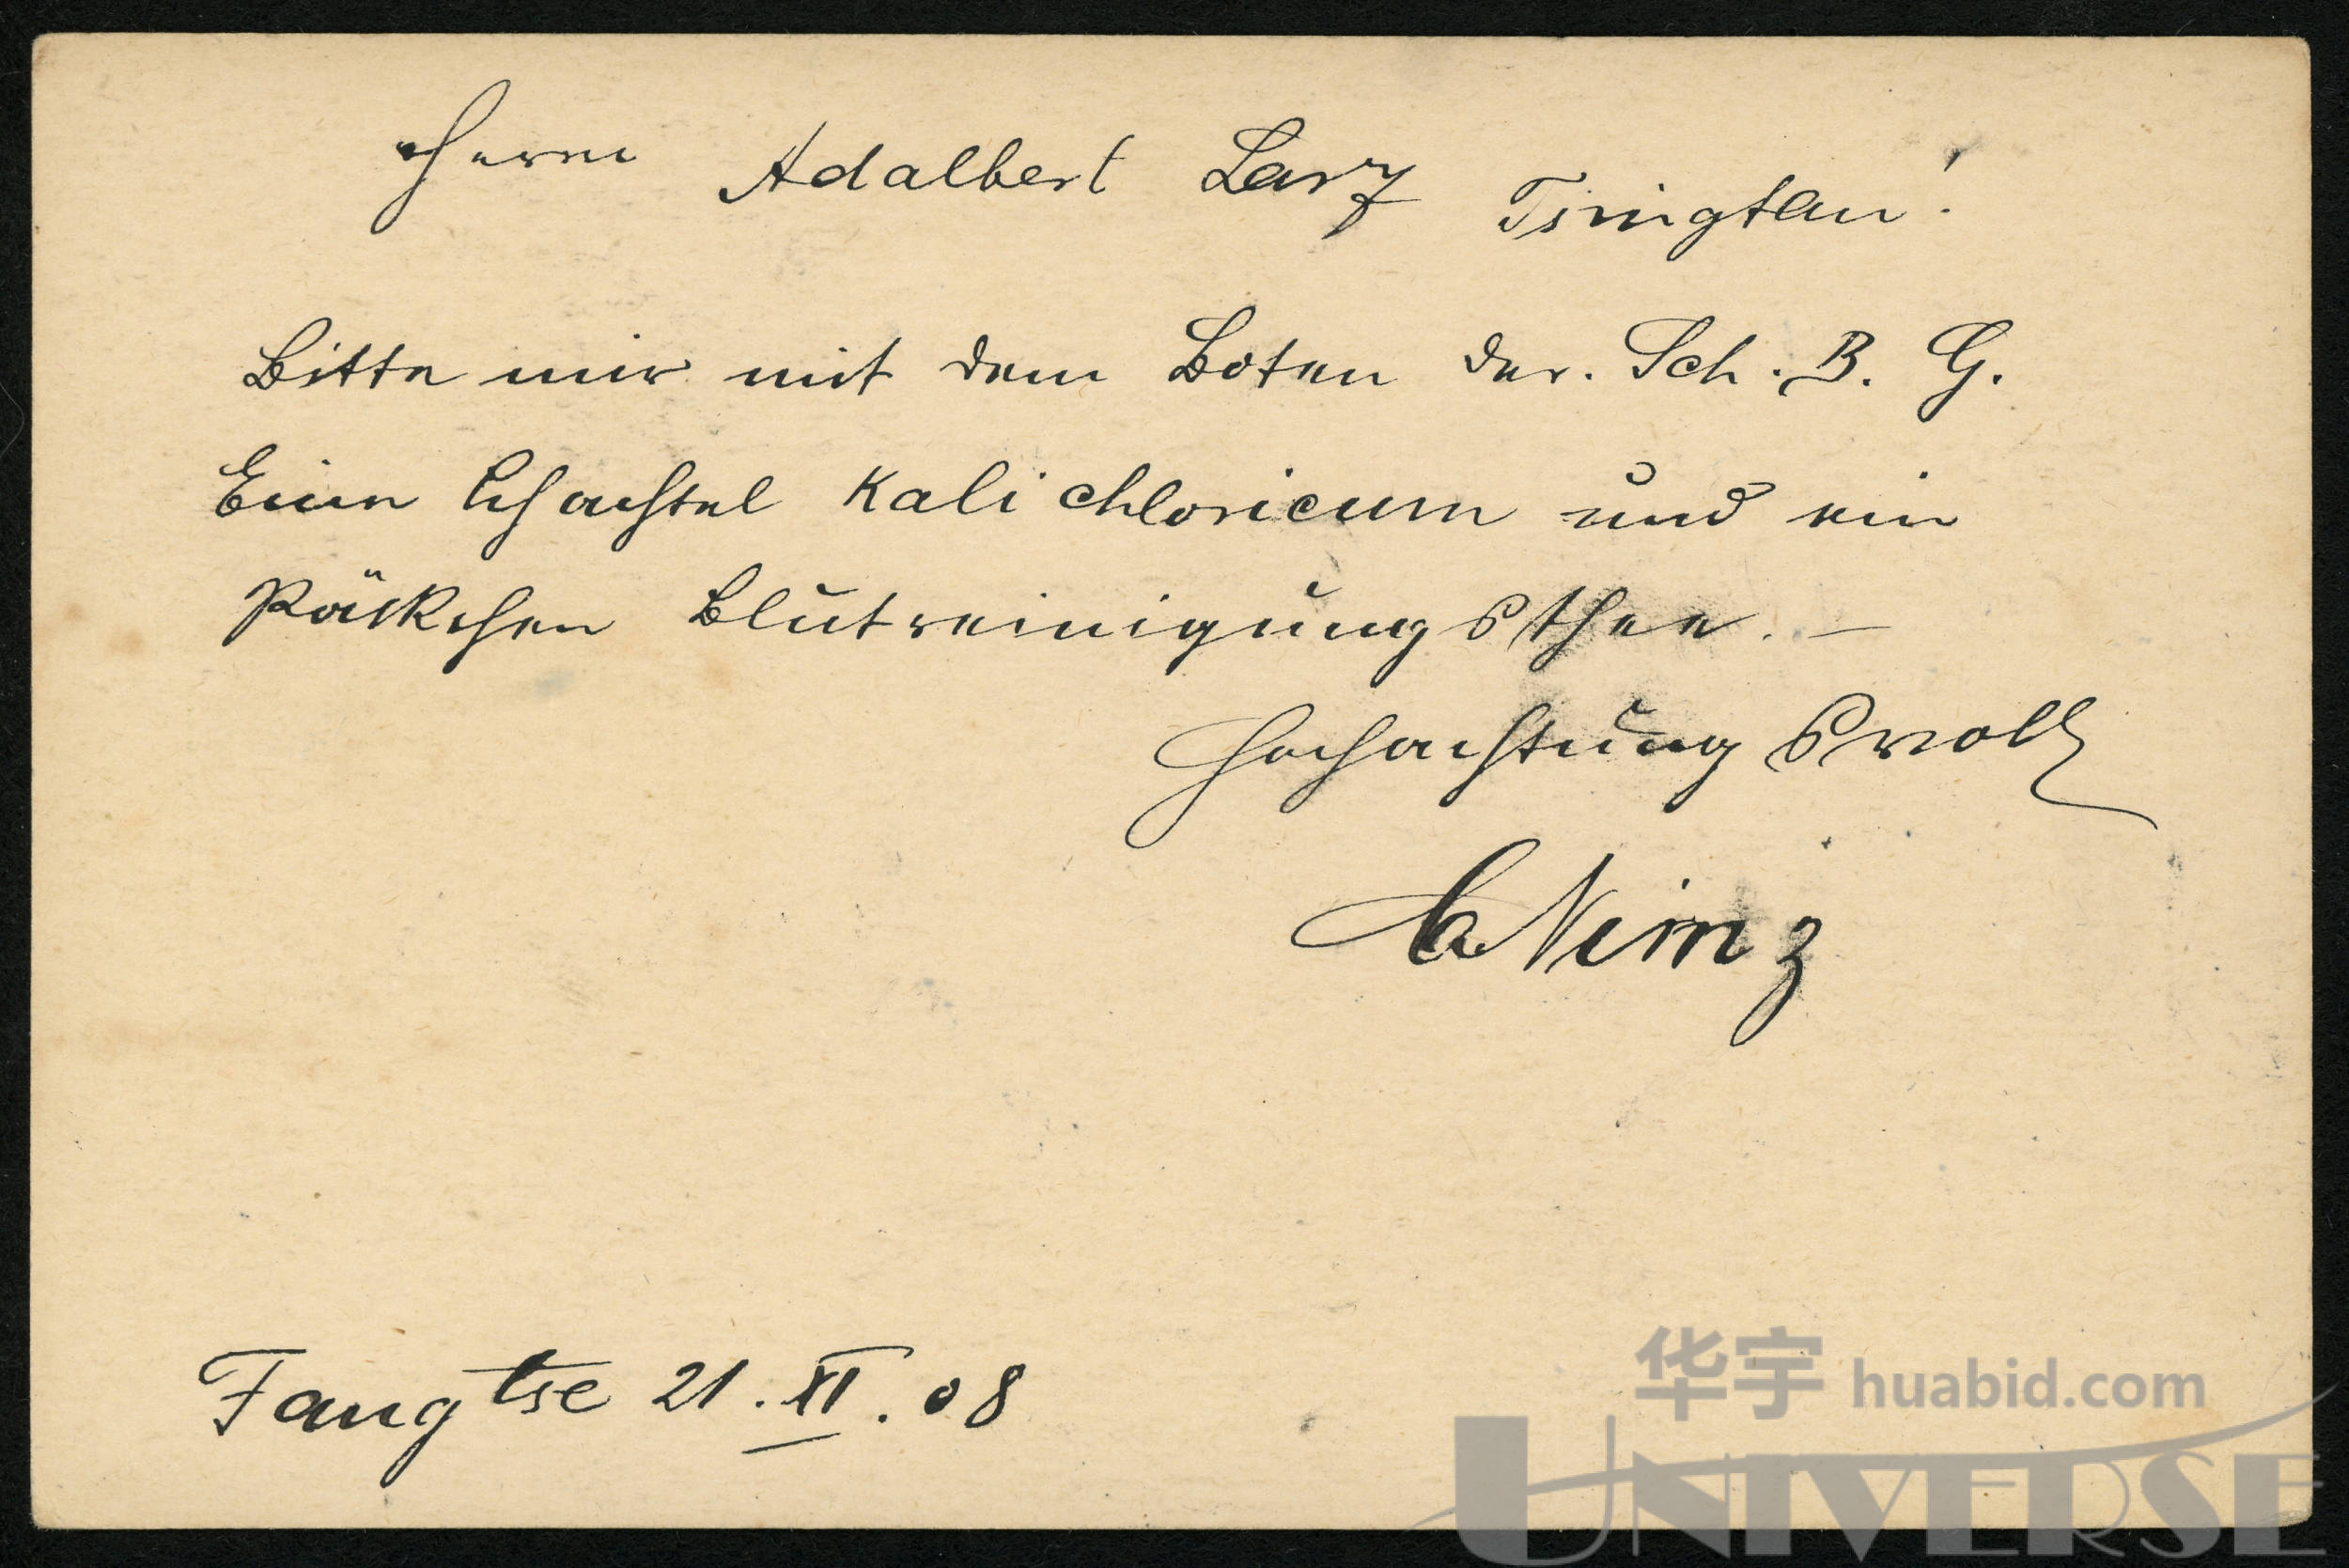 Herrn Adalbert Larz Tsingtau!
Bitte mir mit dem Boten der. Sch. B. G.
Eine Schachtel Kali chloricum und ein
Päckchen Blutreinigungsthee. —
Hochachtungsvoll
Nimz
Fangtse 21. XI. 08
华宇 huabid.com
UNIVERSE